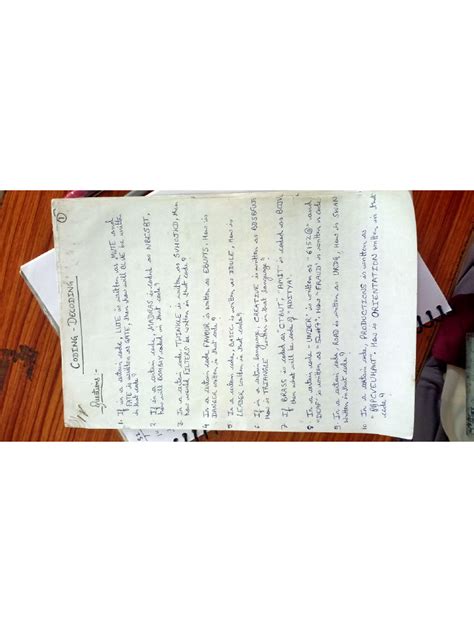 ①
CODING - DECODING
Questions:-
1. If in a certain code, LUTE is written as MUTE and
FATE is written as GATE, then how will be written
in that code?
2. If in a certain code, MADRAS is coded as NBESBT,
how will BOMBAY coded in that code?
3. In a certain code TWINKLE is written as SVHOJKD, then
how would FILTERS be written in that code?
4. In a certain code FAVOR is written as EBUPS. How is
DANGER written in that code?
5. In a certain code, BASIC is written as DDULE, How is
LEADER written in that code?
6. In a certain language, CREATIVE is written as BDSBFUJ
How is TRIANGLE written in that language?
7. If BRASS is coded as is coded as
then what will be code of "ADITYA".
8. In a certain code "UNDER" is written as 6152@ and
is written as How "FRAUD" is written in code
9. In a certain code, ROAD is written as URDG, How is SWAN
written in that code?
10. In a certain code, PRODUCTIONS is written as
How is ORIENTATION written in that
code?